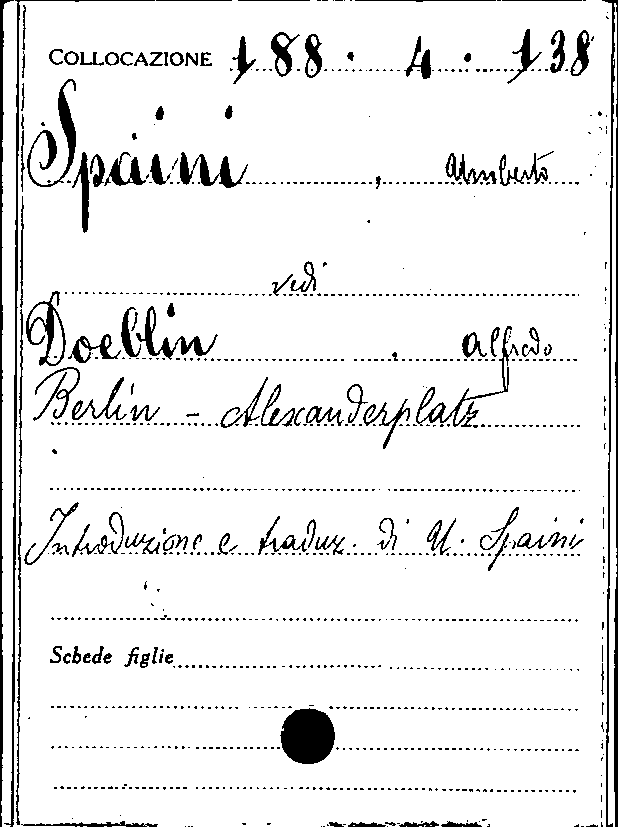 COLLOCAZIONE 188 . 4 . 138
Spaini , Umberto
vedi
Doeblin , Alfredo
Berlin - Alexanderplatz
Introduzione e traduz. di U. Spaini
Schede figlie